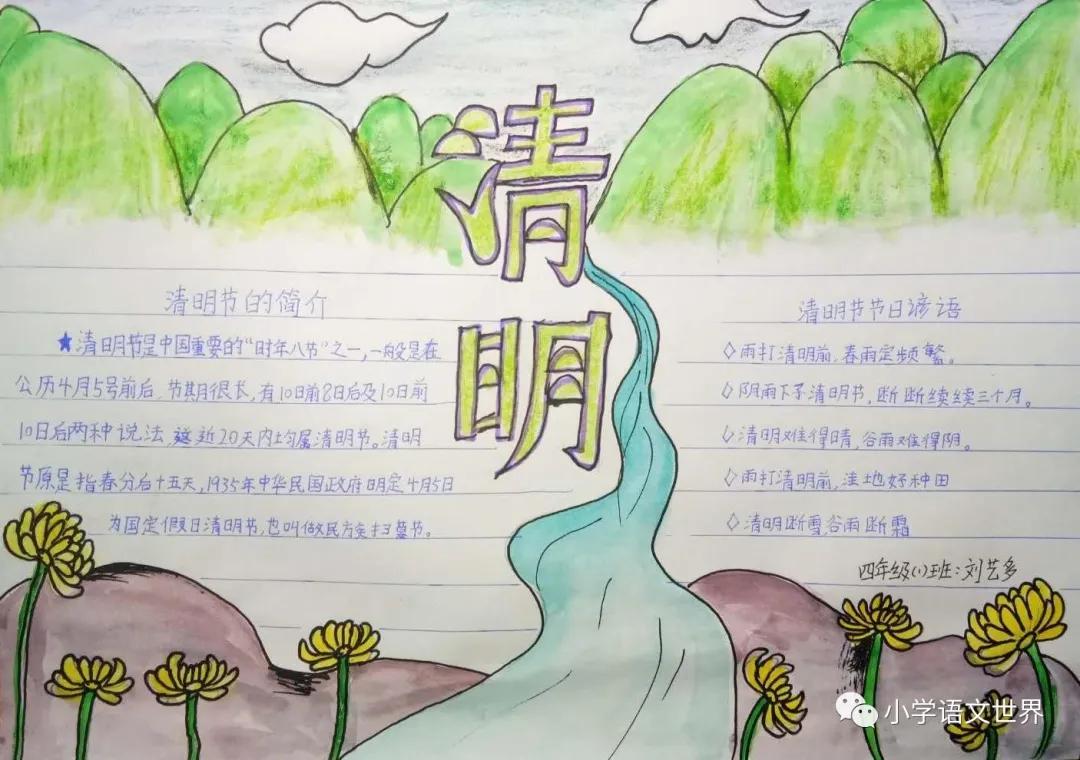 清明
清明节的简介
★清明节是中国重要的“时年八节”之一,一般是在
公历4月5号前后,节期很长,有10日前8日后及10日前
10日后两种说法,这近20天内均属清明节。清明
节原是指春分后十五天,1935年中华民国政府明定4月5日
为国定假日清明节,也叫做民方矣扫墓节。
清明节节日谚语
◇雨打清明前,春雨定频繁。
◇阴雨下了清明节,断断续续三个月。
◇清明难得晴,谷雨难得阴。
◇雨打清明前,洼地好种田
◇清明断雪,谷雨断霜
四年级(1)班:刘艺多
小学语文世界